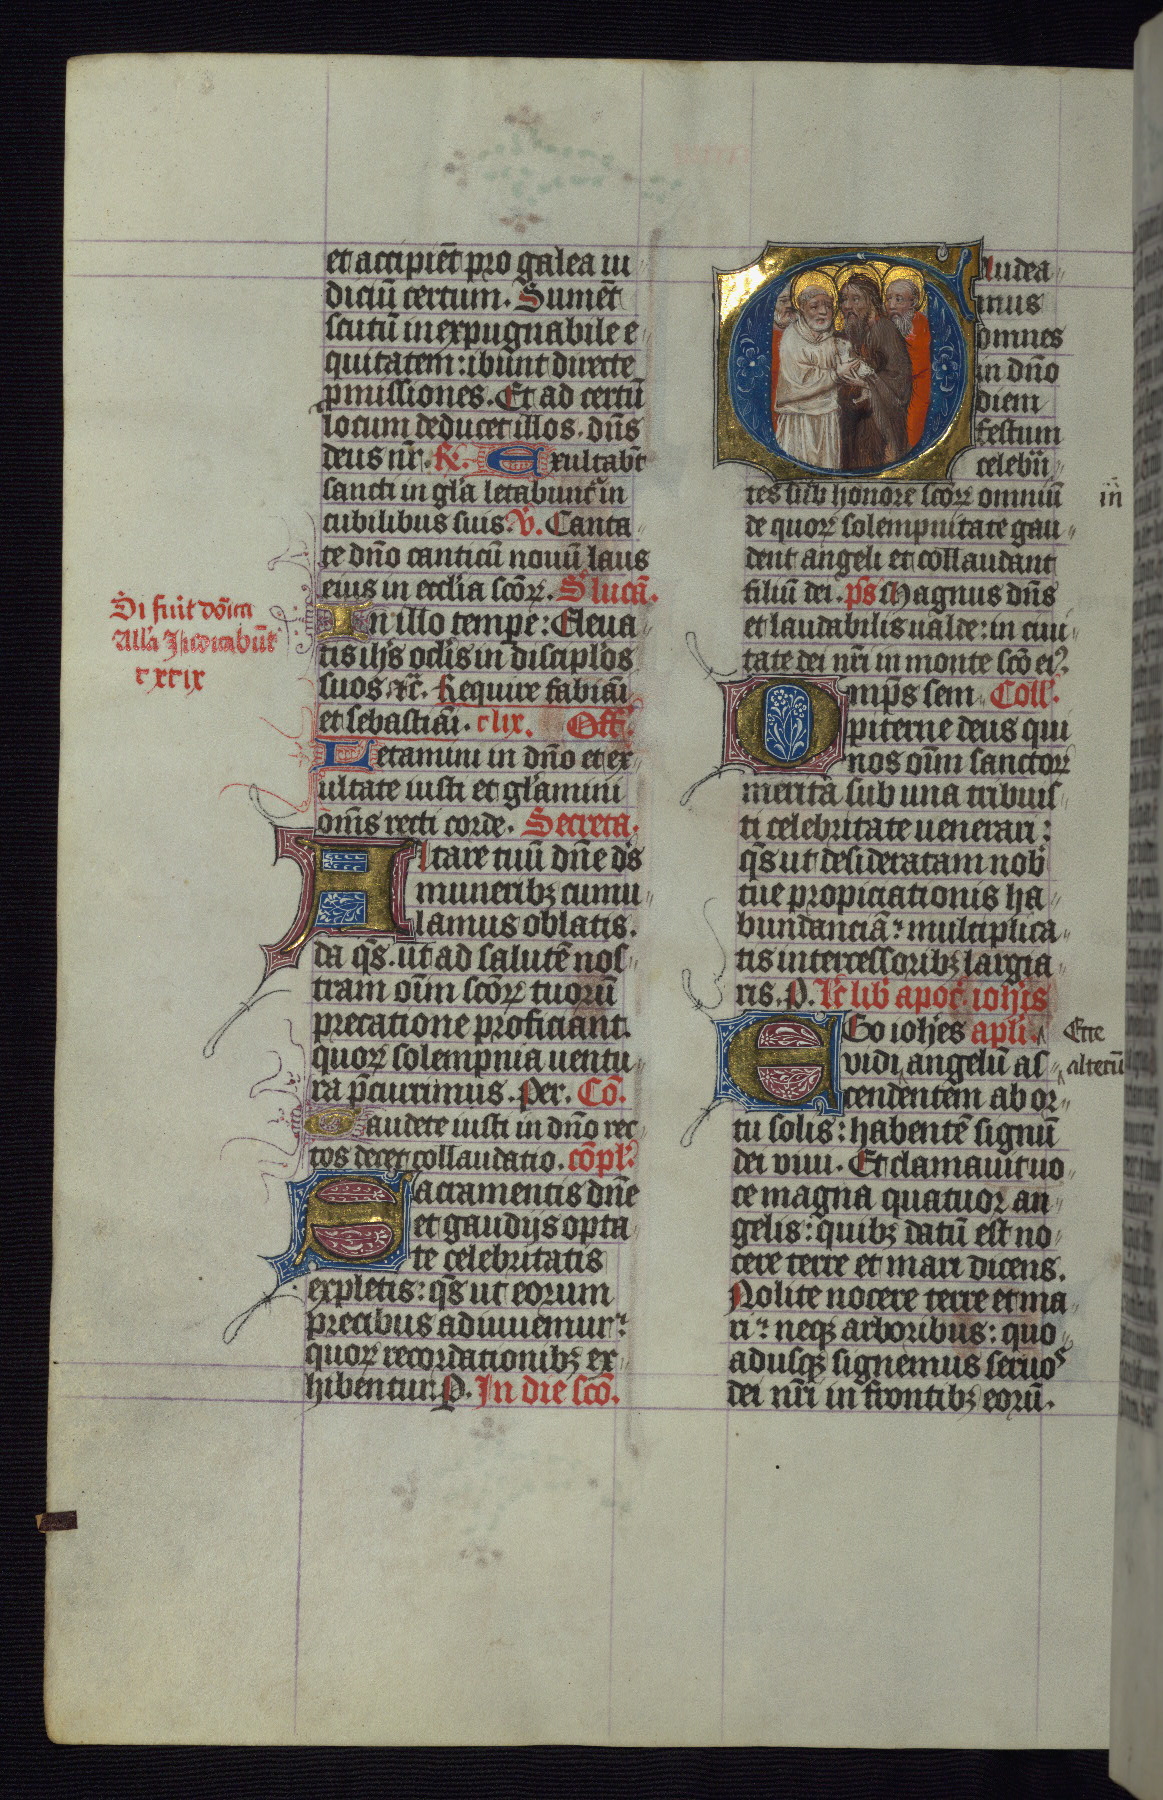 et accipiēt pro galea iu
diciū certum. Sumēt
scutū inexpugnabile e
quitatem: ibunt directe
pmissiones. Et ad certū
locum deducet illos. dn̄s
deus nr̄. R̄. Exultabt̄
sancti in gl̄a letabunt̄ in
cubilibus suis. V̄. Canta
te dn̄o canticū nouū laus
eius in ecclīa scōꝝ. S lucā.
In illo tempe: Eleua
tis ih̄s oclīs in disciplōs
suos ⁊c̄. Require fabiāi
et sebastiāi. clix. Off̄.
Letamini in dn̄o et ex
ultate iusti et glāmini
om̄s recti corde. Secreta.
Altare tuū dn̄e d's
muneribꝫ cumu
lamus oblatis.
da qs̄. ut ad salutē nos
tram oīm scōꝝ tuorū
precatione proficiant.
quoꝝ solempnia uentu
ra p̄currimus. Per. Cō.
Gaudete iusti in dn̄o rec
tos decet collaudatio. cōpl̄.
Sacramentis dn̄e
et gaudijs opta
te celebritatis
expletis: qs̄ ut eorum
precibus adiuuemur:
quoꝝ recordationibꝫ ex
hibentur. P. In die scō.
Si fūit dōica
Allā Iudicabūt
cxcix
Gaudea
mus
omnes
in dn̄o
diem
festum
celebrā
tes sub honore scōꝝ omniū
de quoꝝ solempnitate gau
dent angeli et collaudant
filiū dei. ps Magnus dn̄s
et laudabilis ualde: in ciui
tate dei nr̄i in monte scō ei⁹.
Omp̄s sem Coll̄.
piterne deus qui
nos oīm sanctoꝝ
merita sub una tribuis
ti celebritate uenerari:
qs̄ ut desideratam nob̄
tue propiciationis ha
bundanciā: multiplica
tis intercessoribꝫ largia
ris. P. Lc̄ lib̄ apoc̄. ioh̄is
Ego ioh̄es apl̄i.
vidi angelū as
cendentem ab or
tu solis: habentē signū
dei viui. Et clamauit uo
ce magna quatuor an
gelis: quibꝫ datū est no
cere terre et mari dicens.
Nolite nocere terre et ma
ri: neqꝫ arboribus: quo
adusqꝫ signemus seruos
dei nr̄i in frontibꝫ eorū.
Ecce
alterū